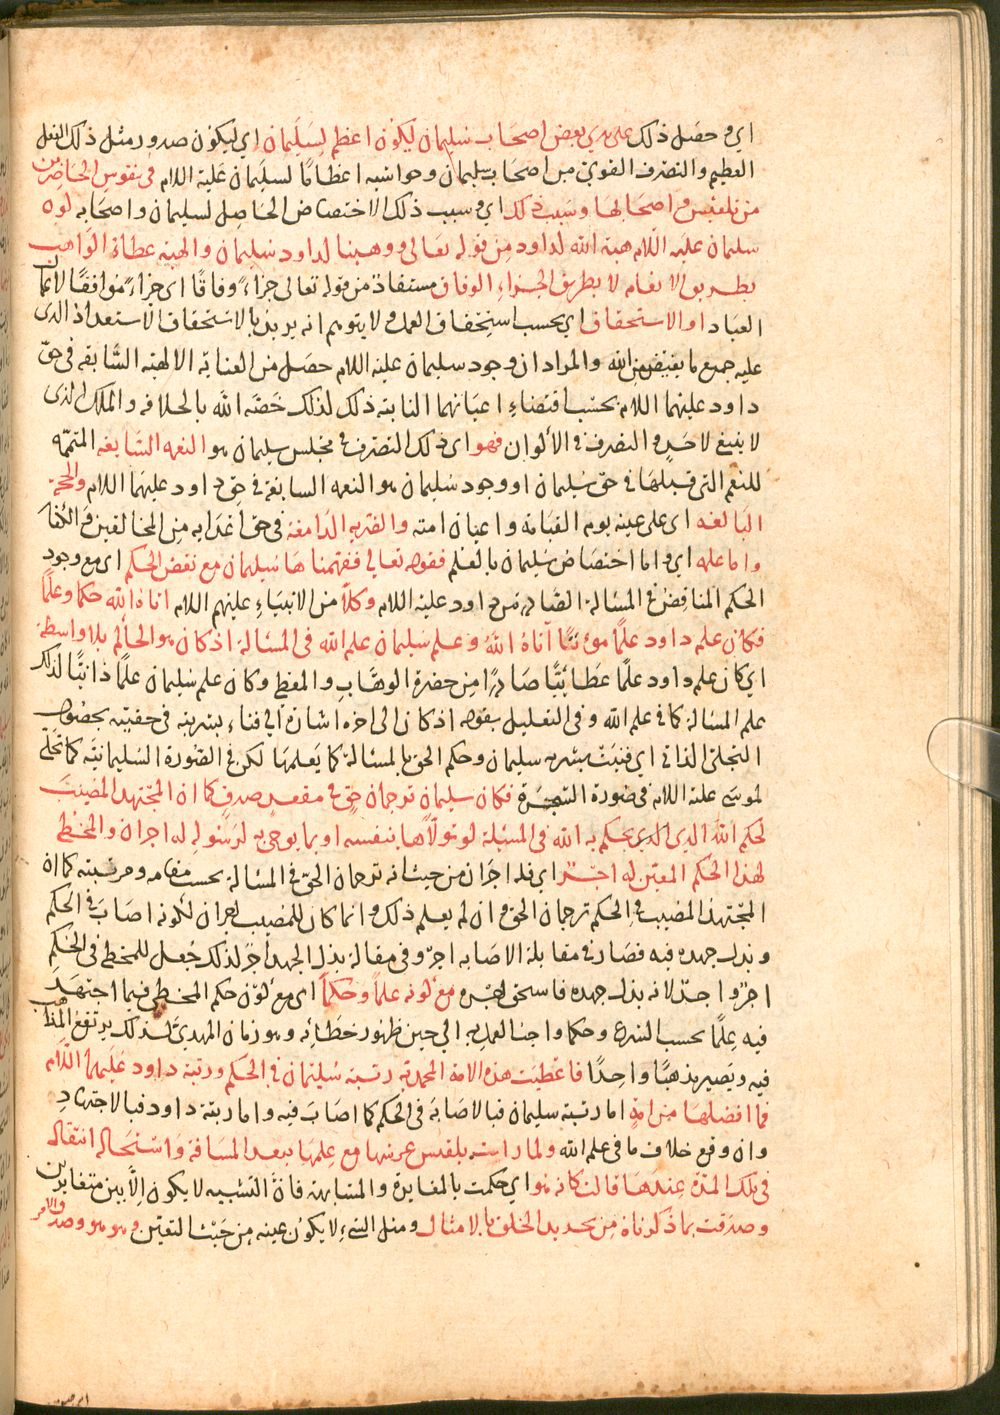 اي وحصل ذلك على يدي بعض اصحاب سليمان ليكون اعظم لسليمان اي ليكون صدور مثل ذلك الفعل
العظيم والتصرف القوي من اصحاب سليمان وحواشيه اعظامًا لسليمان عليه السلام في نفوس الحاضرين
من بلقيس واصحابها وسبب ذلك اي وسبب ذلك الاختصاص الحاصل لسليمان واصحابه كونه
سليمان عليه السلام هبة الله لداود من قوله تعالى ووهبنا لداود سليمان والهبة عطاء الواهب
بطريق الانعام لا بطريق الجزاء الوفاق مستفاد من قوله تعالى جزاءً وفاقًا اي جزاءً موافقًا لاعمال
العباد او الاستحقاق اي بحسب استحقاق العمل ولا يتوهم انه يريد بالاستحقاق الاستعداد الذي
عليه جميع ما يفيض من الله والمراد ان وجود سليمان عليه السلام حصل من العناية الالهية السابقة في حق
داود عليهما السلام بحسب اقتضاء اعيانهما الثابتة ذلك لذلك خصه الله بالخلافة والملك الذي
لا ينبغي لاحد والتصرف في الاكوان فهو اي ذلك التصرف في مجلس سليمان هو النعمه السابغه المتممه
للنعم التي قبلها في حق سليمان او وجود سليمان هو النعمه السابغة في حق داود عليهما السلام والحجة
البالغه اي على عينه يوم القيامة واعيان امته والضربه الدامغة في حق اعدايه من المخالفين والكفار
واما علمه اي واما اختصاص سليمان بالعلم فقوله تعالى ففهمناها سليمان مع نقض الحكم اي مع وجود
الحكم المناقض في المسالة الصادر من داود عليه السلام وكلاًّ من الانبياء عليهم السلام اتاه الله حكما وعلمًا
فكان علم داود علمًا مؤتىً آتاه الله وعلم سليمان علم الله في المسالة اذ كان هو الحاكم بلا واسطة
اي كان علم داود علمًا عطائيًّا صادرًا من حضرة الوهاب والمعطي وكان علم سليمان علمًا ذاتيًّا لذلك
علم المسالة كما في علم الله وفي التعليل بقوله اذ كان الى اخره اشارة الى فناء بشريته في حقيته بحصول
التجلي الذاتي اي فنيت بشرية سليمان وحكم الحق بالمسالة كما يعلمها لكن في الصورة السليمانية كما تجلى
لموسى عليه السلام في صورة الشجرة فكان سليمان ترجمان حق في مقعد صدق كما ان المجتهد المصيب
لحكم الله الذي يحكم به الله في المسئلة لو تولاها بنفسه او بما يوحي به لرسوله له اجران والمخطي
لهذا الحكم المعين له اجرٌ اي فله اجران من حيث انه ترجمان الحق في المسالة بحسب مقامه ومرتبته كما ان
المجتهد المصيب في الحكم ترجمان الحق وان لم يعلم ذلك وانما كان للمصيب اجران لكونه اصاب في الحكم
وبذل جهده فيه فصار في مقابلة الاصابه اجرٌ وفي مقابلة بذل الجهد اجرٌ لذلك جعل للمخطي في الحكم
اجرًا واحدًا لانه بذل جهده فاستحق اجره مع كونه علمًا وحكمًا اي مع كون حكم المخطي فيما اجتهد
فيه علمًا بحسب الشرع وحكما واجبا العمل به الى حين ظهور خطائه وهو زمان المهدي لذلك يرتفع المذاهب
فيه ويصير مذهبًا واحدًا فاعطيت هذه الامة المحمديه رتبة سليمان في الحكم ورتبة داود عليهما السلام
فما افضلها من امةٍ اما رتبة سليمان فبالاصابة في الحكم كما اصاب فيه واما رتبة داود فبالاجتهادِ
وان وقع خلاف ما في علم الله ولما رات بلقيس عرشها مع علمها ببعد المسافة واستحالة انتقاله
في تلك المدة عندها قالت كانه هو اي حكمت بالمغايرة والمشابهة فان التشبيه لا يكون الّا بين متغايرين
وصدقت بما ذكرناه من تجديد الخلق بالامثال ومثل الشيء لا يكون عينه من حيث التعين وهو هو وصدق الامر